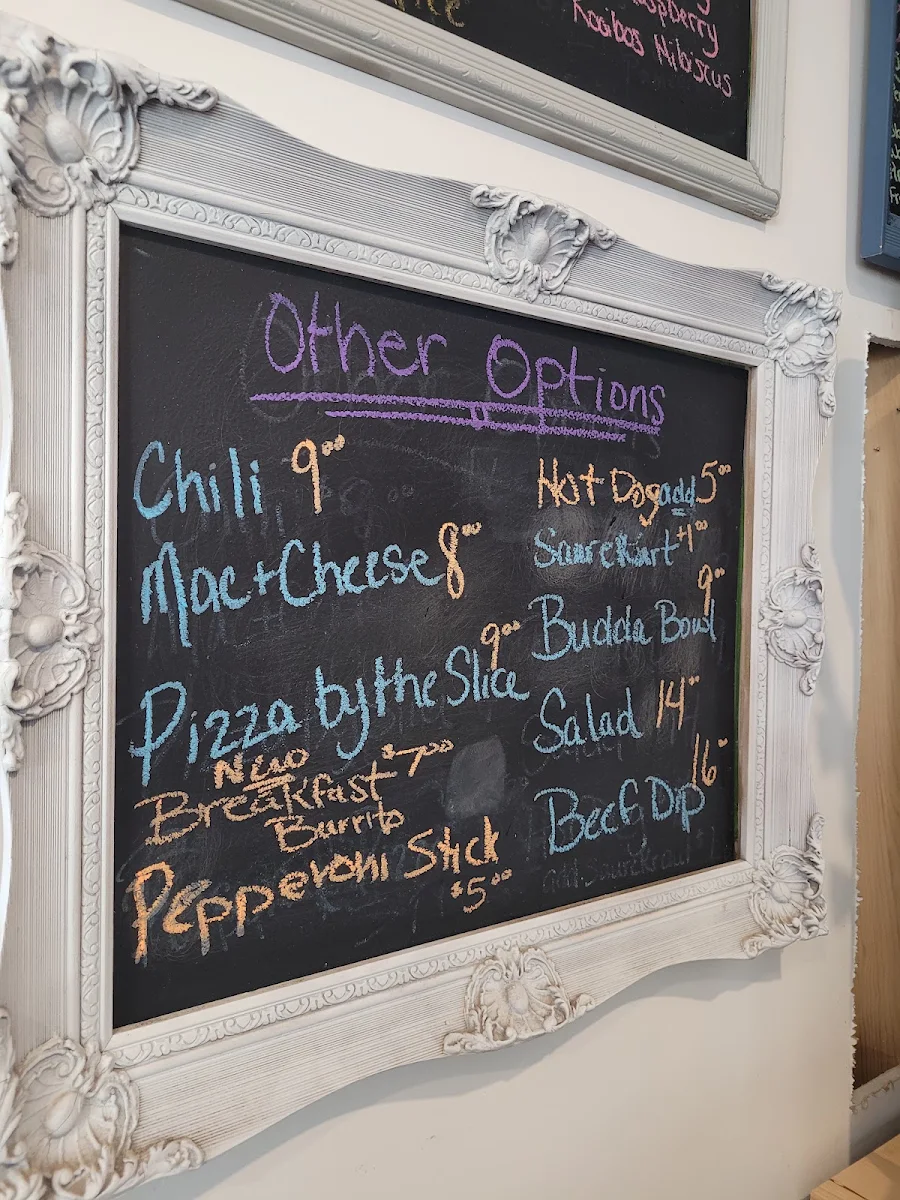 Raspberry
Rooibos Hibiscus
Other Options
Chili 9⁰⁰
Mac+Cheese 8⁰⁰
Pizza by the Slice 9⁰⁰
New
Breakfast $7⁰⁰
Burrito
Pepperoni Stick
$5⁰⁰
Hot Dog add 5⁰⁰
Saurekraut +1⁰⁰
Budda Bowl 9⁰⁰
Salad 14⁰⁰
Beef Dip 16⁰⁰